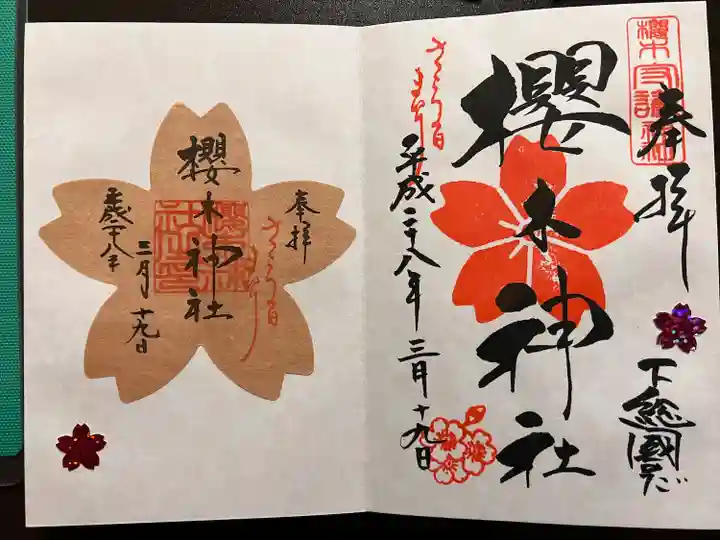 奉拝
下総國のだ
櫻木神社
さくらの日
まいり
平成二十八年三月十九日
奉拝
さくらの日
まいり
櫻木神社
平成二十八年
三月十九日